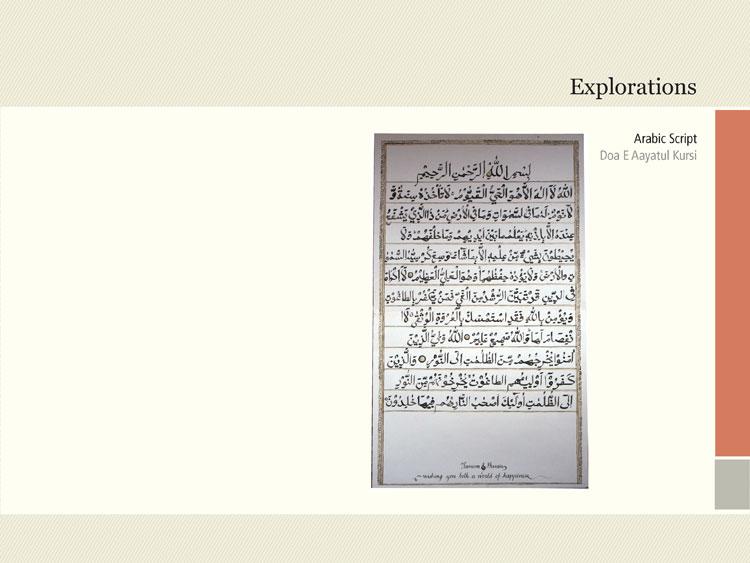 Explorations
Arabic Script
Doa E Aayatul Kursi
بسم الله الرحمن الرحيم
الله لا اله الا هو الحي القيوم لا تأخذه سنة و
لا نوم له ما في السموات وما في الارض من ذا الذي يشفع
عنده الا باذنه يعلم ما بين ايديهم وما خلفهم ولا
يحيطون بشيء من علمه الا بما شاء وسع كرسيه السمو
ت والارض ولا يؤده حفظهما وهو العلي العظيم لا اكراه
في الدين قد تبين الرشد من الغي فمن يكفر بالطاغوت
ويؤمن بالله فقد استمسك بالعروة الوثقى لا
نفصام لها والله سميع عليم الله ولي الذين
امنوا يخرجهم من الظلمت الى النور والذين
كفروا اوليئهم الطاغوت يخرجونهم من النور
الى الظلمت اولئك اصحب النار هم فيها خلدون
wishing you both a world of happiness